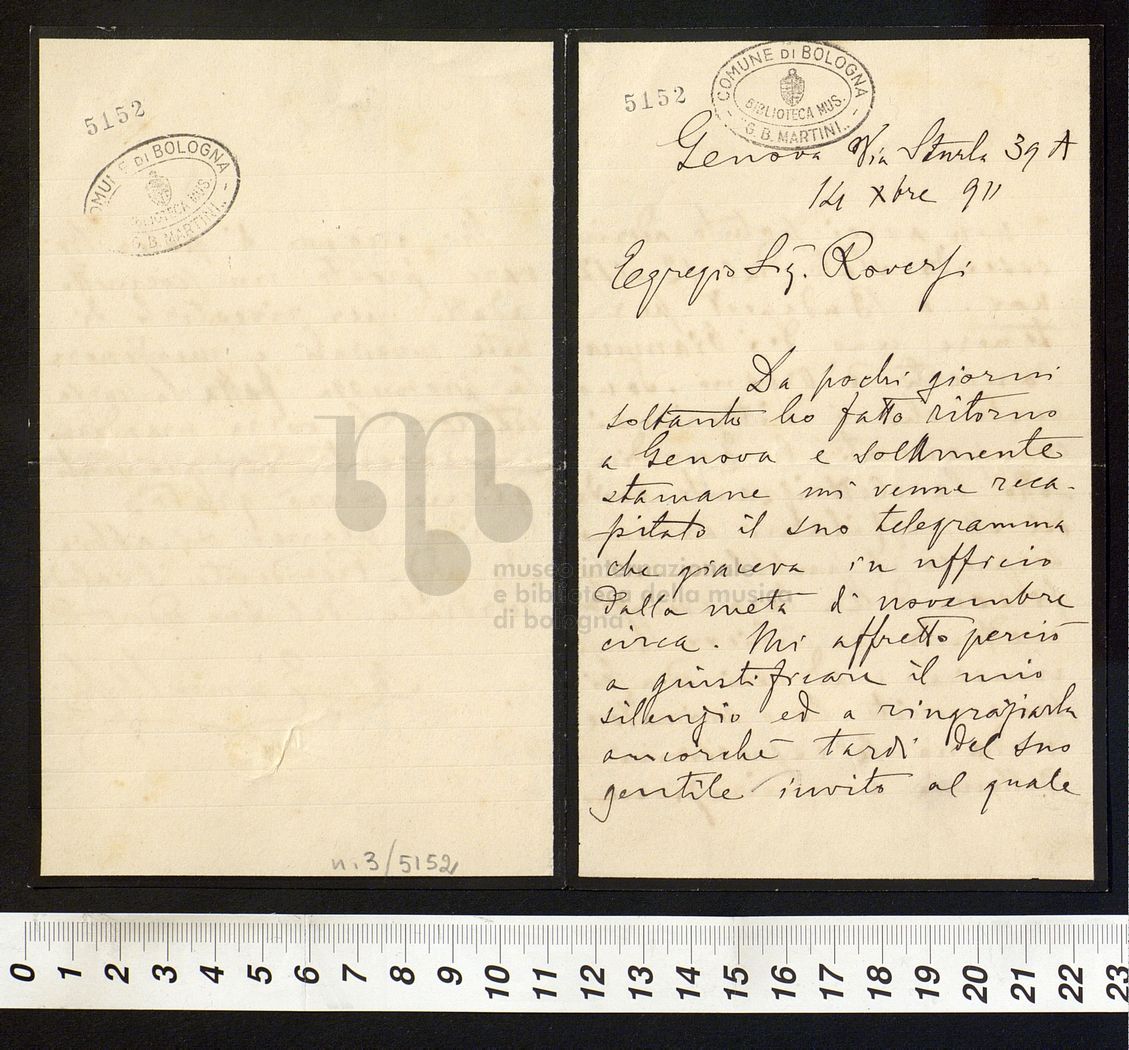 5152
COMUNE DI BOLOGNA
BIBLIOTECA MUS.
"G. B. MARTINI"
n. 3/5152
5152
COMUNE DI BOLOGNA
BIBLIOTECA MUS.
"G. B. MARTINI"
Genova Via Sturla 39 A
14 Xbre 911
Egregio Sig. Roversi
Da pochi giorni
soltanto ho fatto ritorno
a Genova e solamente
stamane mi venne reca-
pitato il suo telegramma
che giaceva in ufficio
dalla metà di novembre
circa. Mi affretto perciò
a giustificare il mio
silenzio ed a ringraziarla
ancorchè tardi del suo
gentile invito al quale
museo internazionale
e biblioteca della musica
di bologna
0 1 2 3 4 5 6 7 8 9 10 11 12 13 14 15 16 17 18 19 20 21 22 23